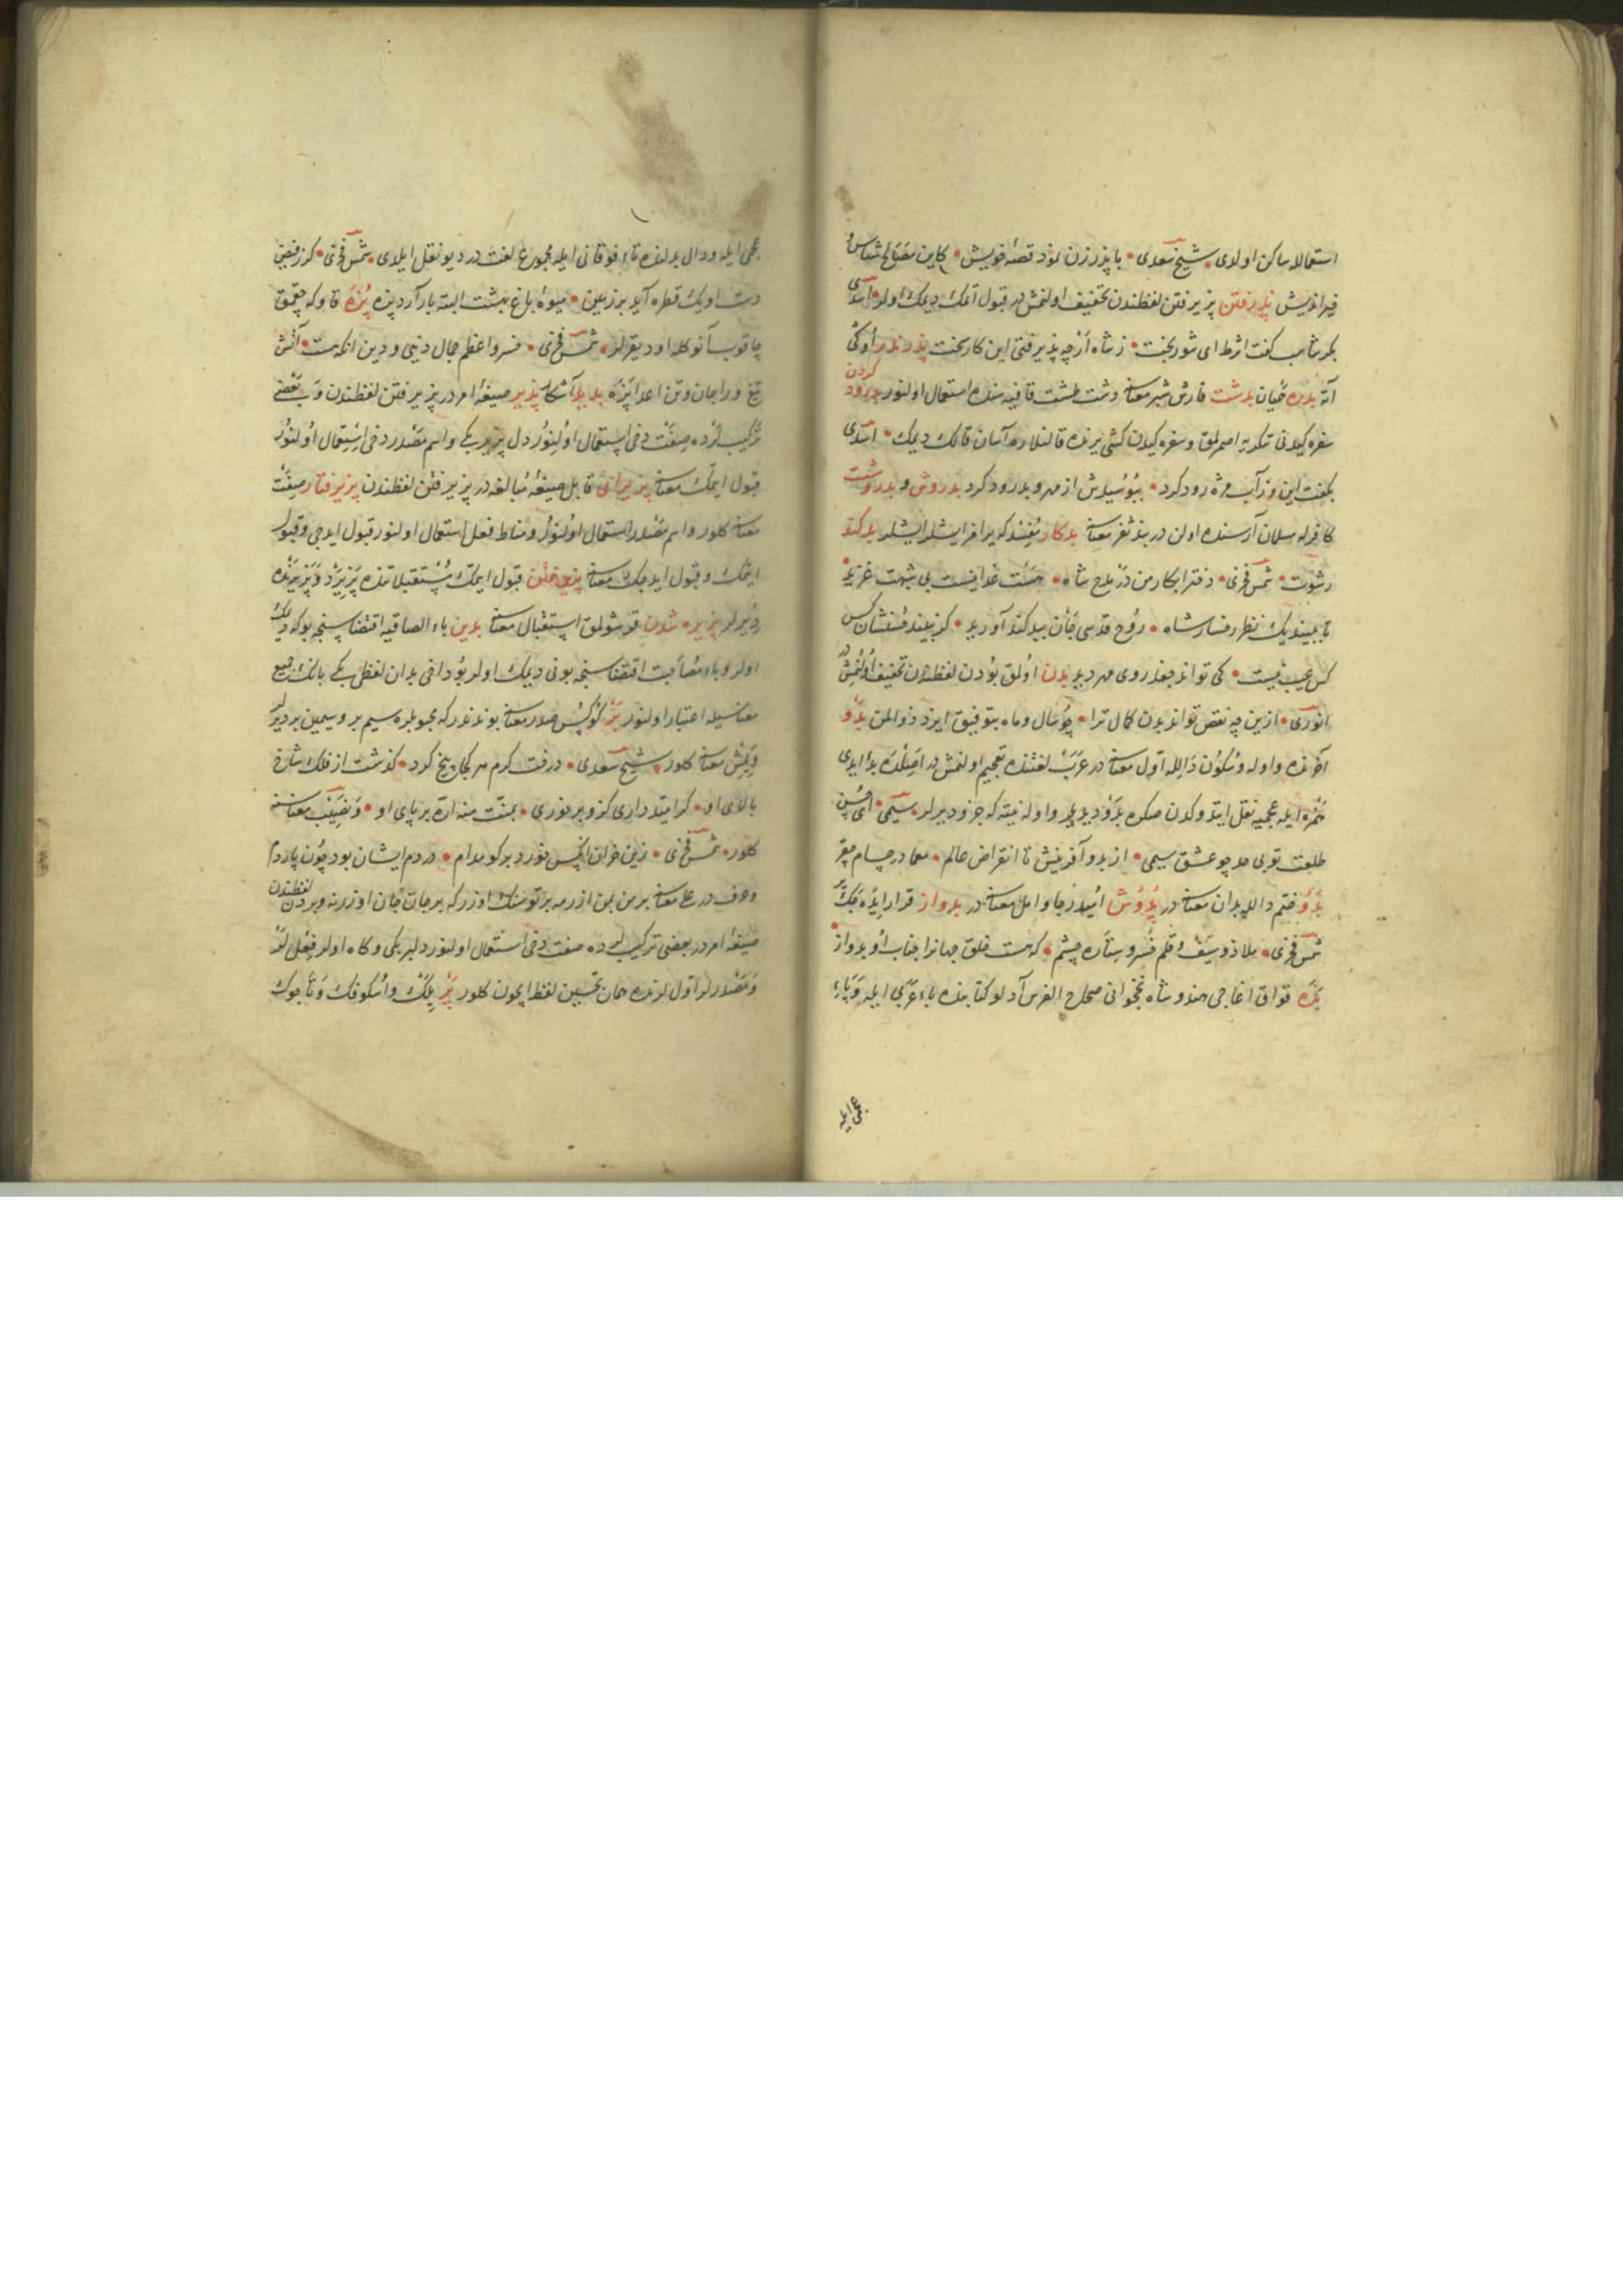 استعمالا ساکن اولدی شیخ سعدی با پدرزن نمود قصهٔ خویش کاین مصالح شناس و
خیر اندیش پذرفتن پذیرفتن لفظندن تخفیف اولنمش در قبول اتمک دیمک اولور اسدی
بکرشاسب کفت اثرط ای شوربخت ز شاه از چه پذیرفتی این کار سخت پذرندر اوکی
اتا بدره خیان بدشت فارش شبر معناسنه دشت طشت قافیه سنده استعمال اولنور بدرود کردن
سفره کیدنی تکریه اصمرلمق و سفره کیدن کشی یرنده قالنلاره آسان قالک دیمک اسدی
بکفت این وزآب مژه رود کرد ببوسیدش از مهر و بدرود کرد بدروش و بدروشت
کافرله مسلمان آرسنده اولن دربند ثغر معناسنه بدکار مفسد که یرامز ایشلر ایشلر بدکند
رشوت شمس فخری دختر ابکار من در مدح شاه هست غذا نیست بی شبهت خرید
تا ببیند یک نظر رخسار شاه روح قدسی جان بیدکند آورید کر نبیند خستشان کس
کس عیب نیست کی تواند جغد روی مهر دید بدن اولمق بودن لفظندن تخفیف اولنمش در
انوری ازین چه نقص تواند بدن کمال ترا چو سال و ماه بتوفیق ایزد ذوالمن بدو
آخرنده واوله و سکون دالله اول معناسنه در عرب لغتنده تعجیم اولنمش در اصلده بدأ ایدی
همزه ایله عجمیه نقل ایتدوکدن صکره بدو دیدیلر واوله نیته که جزو دیرلر سیمی ای حسن
طلعت توبی حد چو عشق سیمی از بدو آفرینش تا انقراض عالم معا در حسام مقر
بدو ضم دالله بدان معناسنه در پدوش امید و رجا و امل معناسنه در بدواز قرار ایده جک یر
شمس فخری ملاذ و سیف و قلم خسرو ستاره حشم که هست خلق جهانرا جناب او بدواز
بده قواق اغاجی هندوشاه نخجوانی صحاح الفرس آدلو کتابنده باء عربی ایله و باء
عجمی ایله
عجمی ایله و دال یرلنده تاء فوقانی ایله مجموع لغت در دیو نقل ایلدی شمس فخری کر ز فیض
دست او یک قطره آید بر زمین میوهٔ باغ بهشت البته بار آرد پده پده قاو که چقمق
چاقوب آنوکله اود یقرلر شمس فخری خسرو اعظم جمال دنیی و دین انکه هست آتش
تیغ ورا جان و تن اعدا پده بدید آشکار پذیر صیغهٔ امر در پذیرفتن لفظندن و بعضی
ترکیبلرده صفت دخی استعمال اولنور دل پذیر کبی و اسم مصدر دخی استعمال اولنور
قبول ایتمک معناسنه پذیرای قابل صیغهٔ مبالغه در پذیرفتن لفظندن پذیرفتار صفت
معناسنه کلور و اسم مصدر استعمال اولنور و مناط فعل استعمال اولنور قبول ایدجی و قبول
ایتمک و قبول ایدجک معناسنه پذیرفتن قبول ایتمک مستقبلاتنده پذیرد و پذیرنده
دیرلر پذیره شدن قرشولمق استقبال معناسنه بدین باء الصاقیه اقتضاسنجه بوکه دیمک
اولر و باء مصاحبت اقتضاسنجه بونی دیمک اولر بو داخی بدان لفظی کبی بانک جمیع
معناسیله اعتبار اولنور بر کوکس صدر معناسنه بوندندر که محبوبلره سیم بر و سیمین بر دیرلر
و یمش معناسنه کلور شیخ سعدی درخت کرم هر کجا بیخ کرد گذشت از فلک شاخ
بالای او کر امیدواری کزو بر خوری بمنت منه اره بر پای او و نصیب معناسنه
کلور شمس فخری زین خزان انکس خورد بر کو مدام در دم ایشان بود چون پاردم
و حرف در علی معناسنه بر من بنم اوزرمه بر تو سنک اوزرکه بر جان جان اوزرنه و بردن لفظندن
صیغهٔ امر در بعضی ترکیبلرده صفت دخی استعمال اولنور دلبر کبی و کاه اولر فعللر
و مصدرلر اول لرنده همان تحسین لفظ ایچون کلور پر یلک و اسکوفک و تاجوک